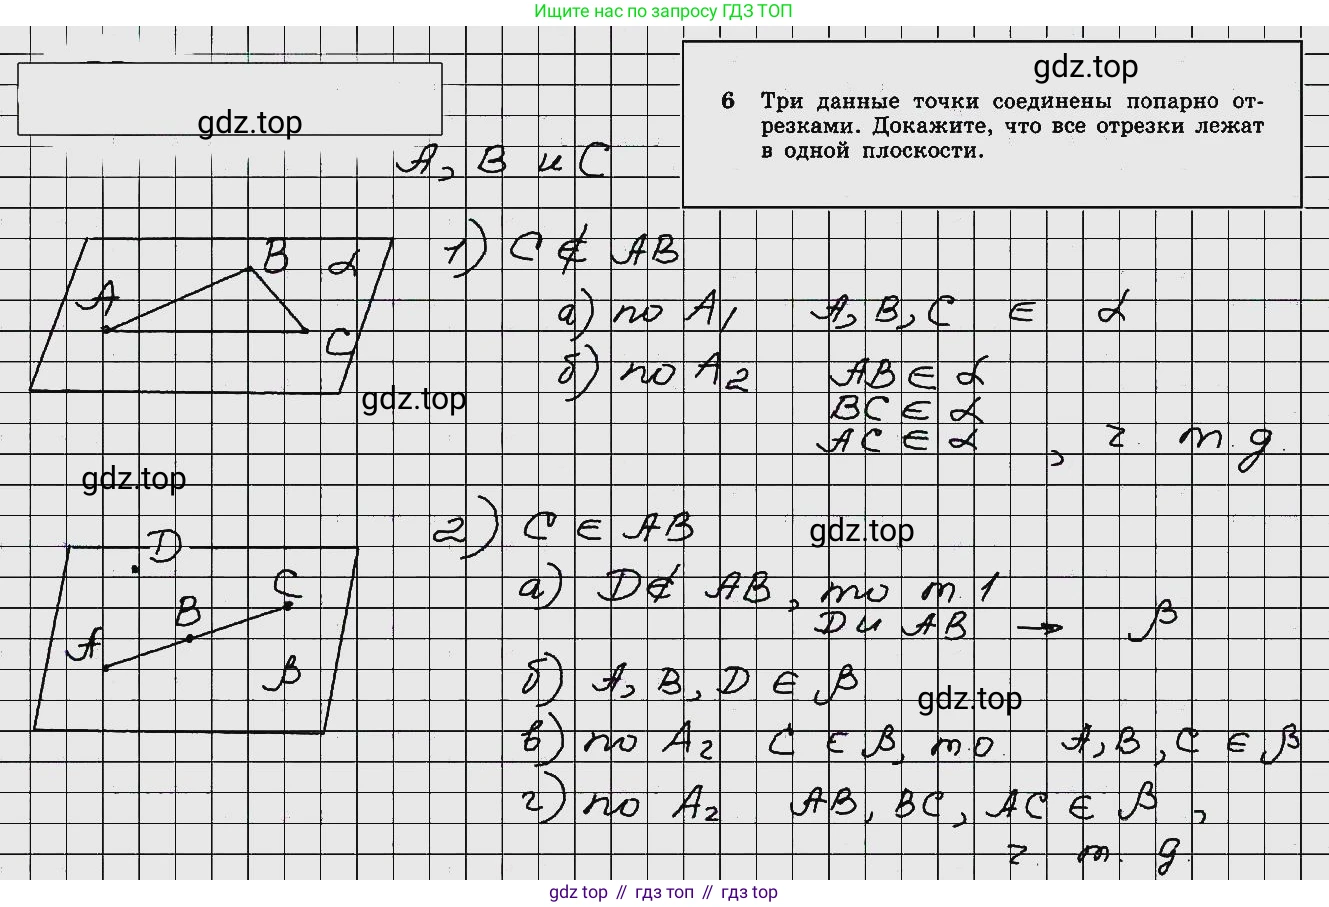 Ищите нас по запросу ГДЗ ТОП
gdz.top
gdz.top
6 Три данные точки соединены попарно от-
резками. Докажите, что все отрезки лежат
в одной плоскости.
A, B и C
A B C α
1) C ∉ AB
а) по A1 A, B, C ∈ α
б) по A2 AB ∈ α
BC ∈ α
AC ∈ α, ч т. д.
gdz.top
gdz.top
D
A B C β
2) C ∈ AB
gdz.top
а) D ∉ AB, то т. 1
D и AB → β
б) A, B, D ∈ β
gdz.top
в) по A2 C ∈ β, то A, B, C ∈ β
г) по A2 AB, BC, AC ∈ β,
ч т. д.
gdz top // гдз топ // gdz top